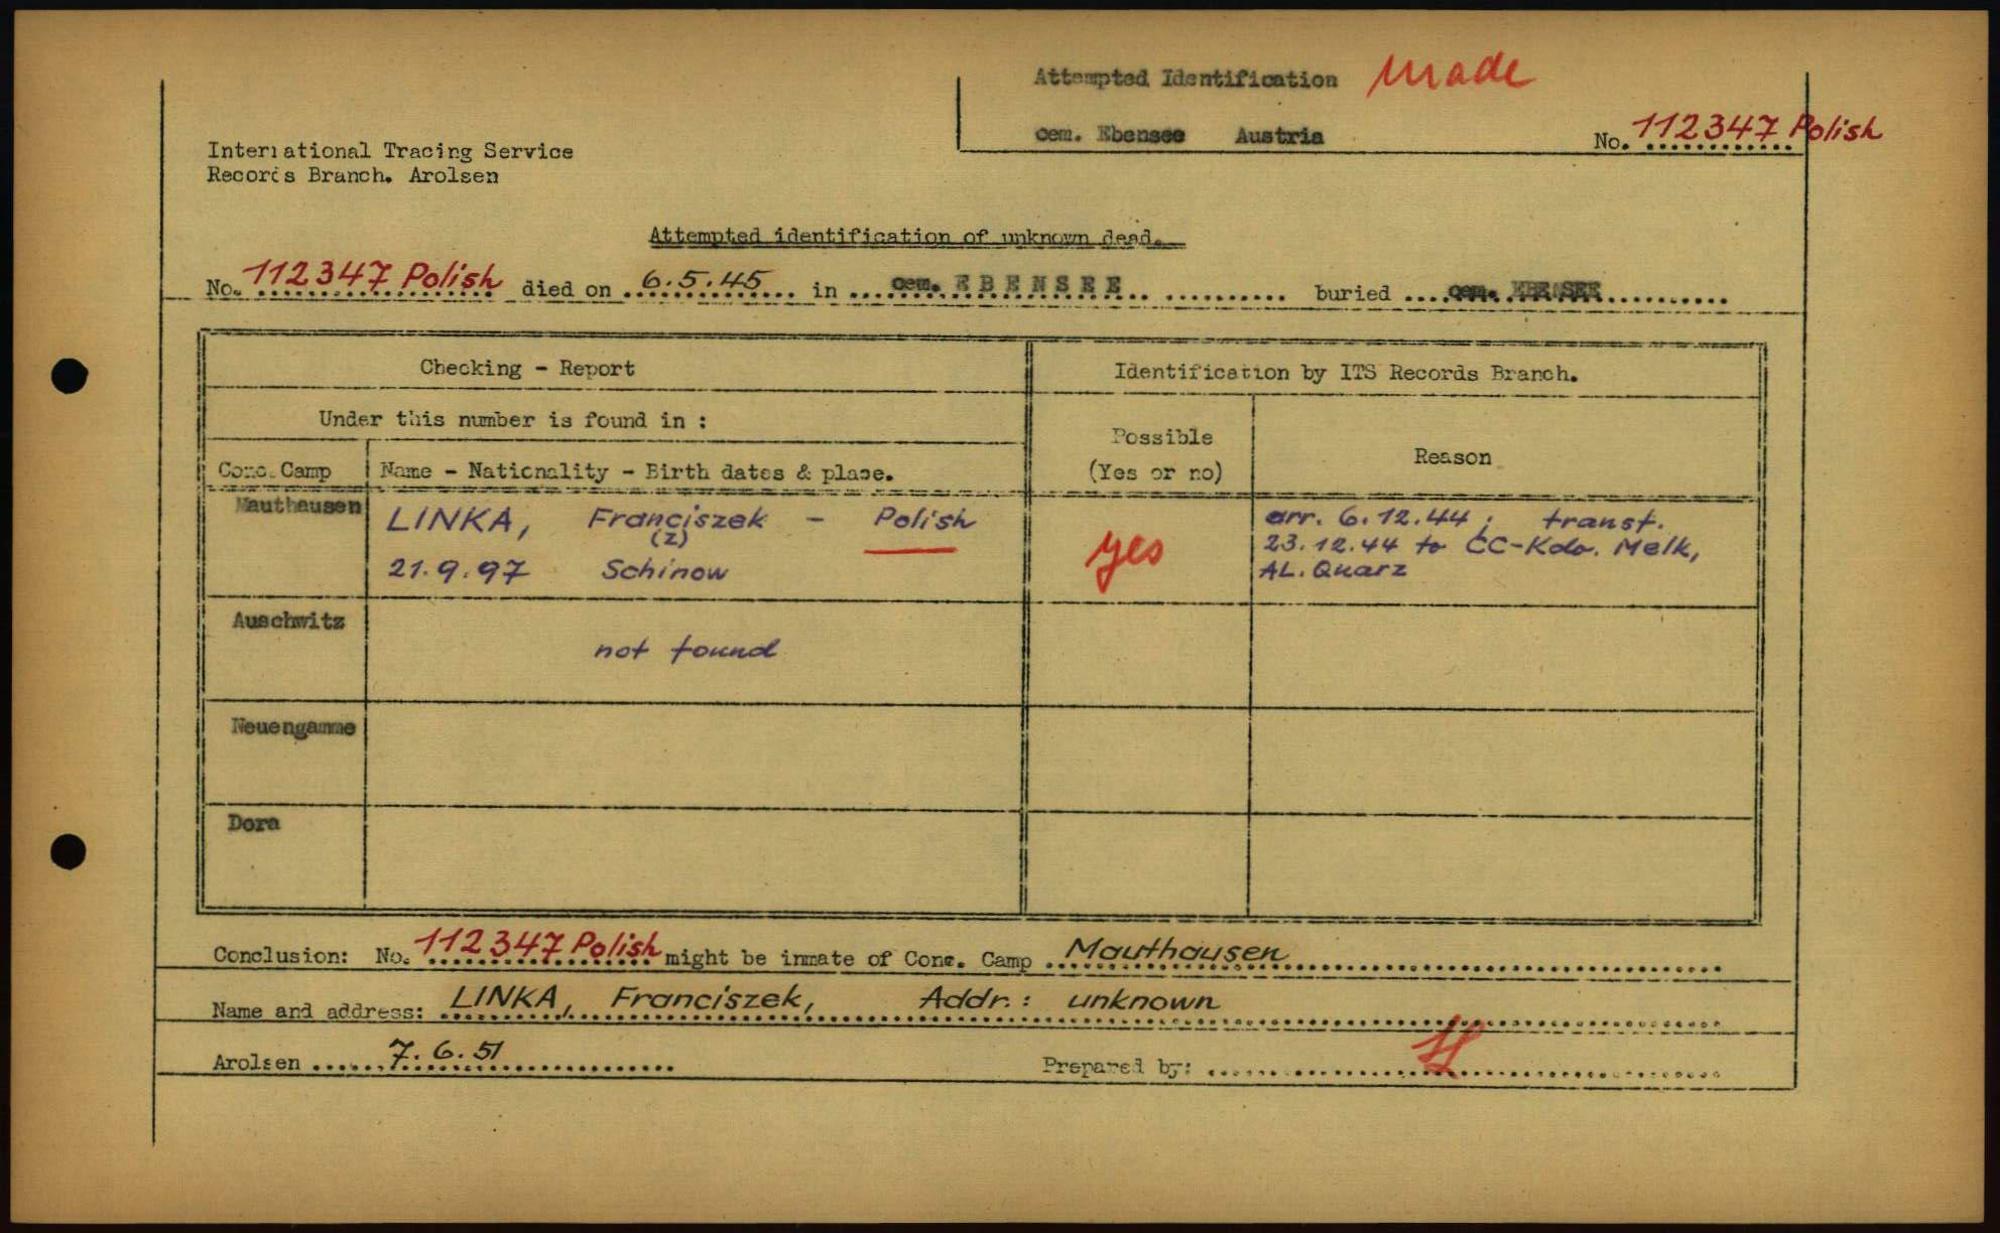 Attempted Identification made
cem. Ebensee Austria No. 112347 Polish
International Tracing Service
Records Branch. Arolsen
Attempted identification of unknown dead.
No. 112347 Polish died on 6.5.45 in cem. EBENSEE buried cem. EBENSEE
Checking - Report
Identification by ITS Records Branch.
Under this number is found in :
Possible
(Yes or no)
Reason
Conc. Camp Name - Nationality - Birth dates & place.
Mauthausen
LINKA, Franciszek - Polish
(Z)
21.9.97 Schinow
yes
arr. 6.12.44; transf.
23.12.44 to CC-Kdo. Melk,
AL. Quarz
Auschwitz
not found
Neuengamme
Dora
Conclusion: No. 112347 Polish might be inmate of Conc. Camp Mauthausen
Name and address: LINKA, Franciszek, Addr.: unknown
Arolsen 7.6.51 Prepared by: